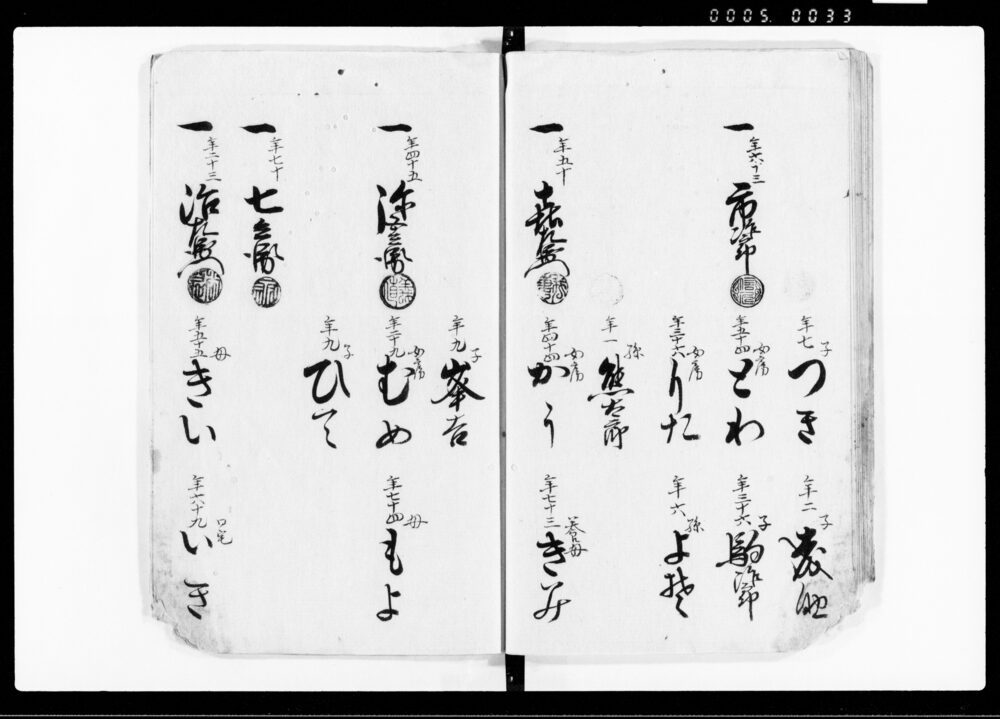 0005. 0033
年七 子 つき
年二 子
一 年六十三 市次郎
年五十四 女房 とわ
年三十六 子 駒次郎
年三十六 女房 りた
年六 孫 よそ
年一 孫 熊太郎
一 年五十
年四十四 女房 かう
年七十三 養母 きみ
年九 子 峯吉
一 年四十五 弥兵衛
年三十九 女房 むめ
年七十四 母 もよ
年九 子 ひて
一 年七十 七兵衛
一 年二十三 治右衛門
年五十五 母 きい
年六十九 いき